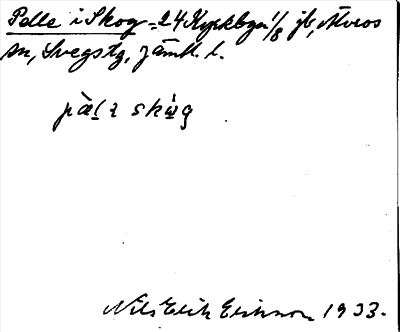 Pelle i Skog = 24 Kyrkbyn 1/8 jb, Älvros
sn, Svegs tg, Jämtl. l.
Nils Erik Eriksson 1933.